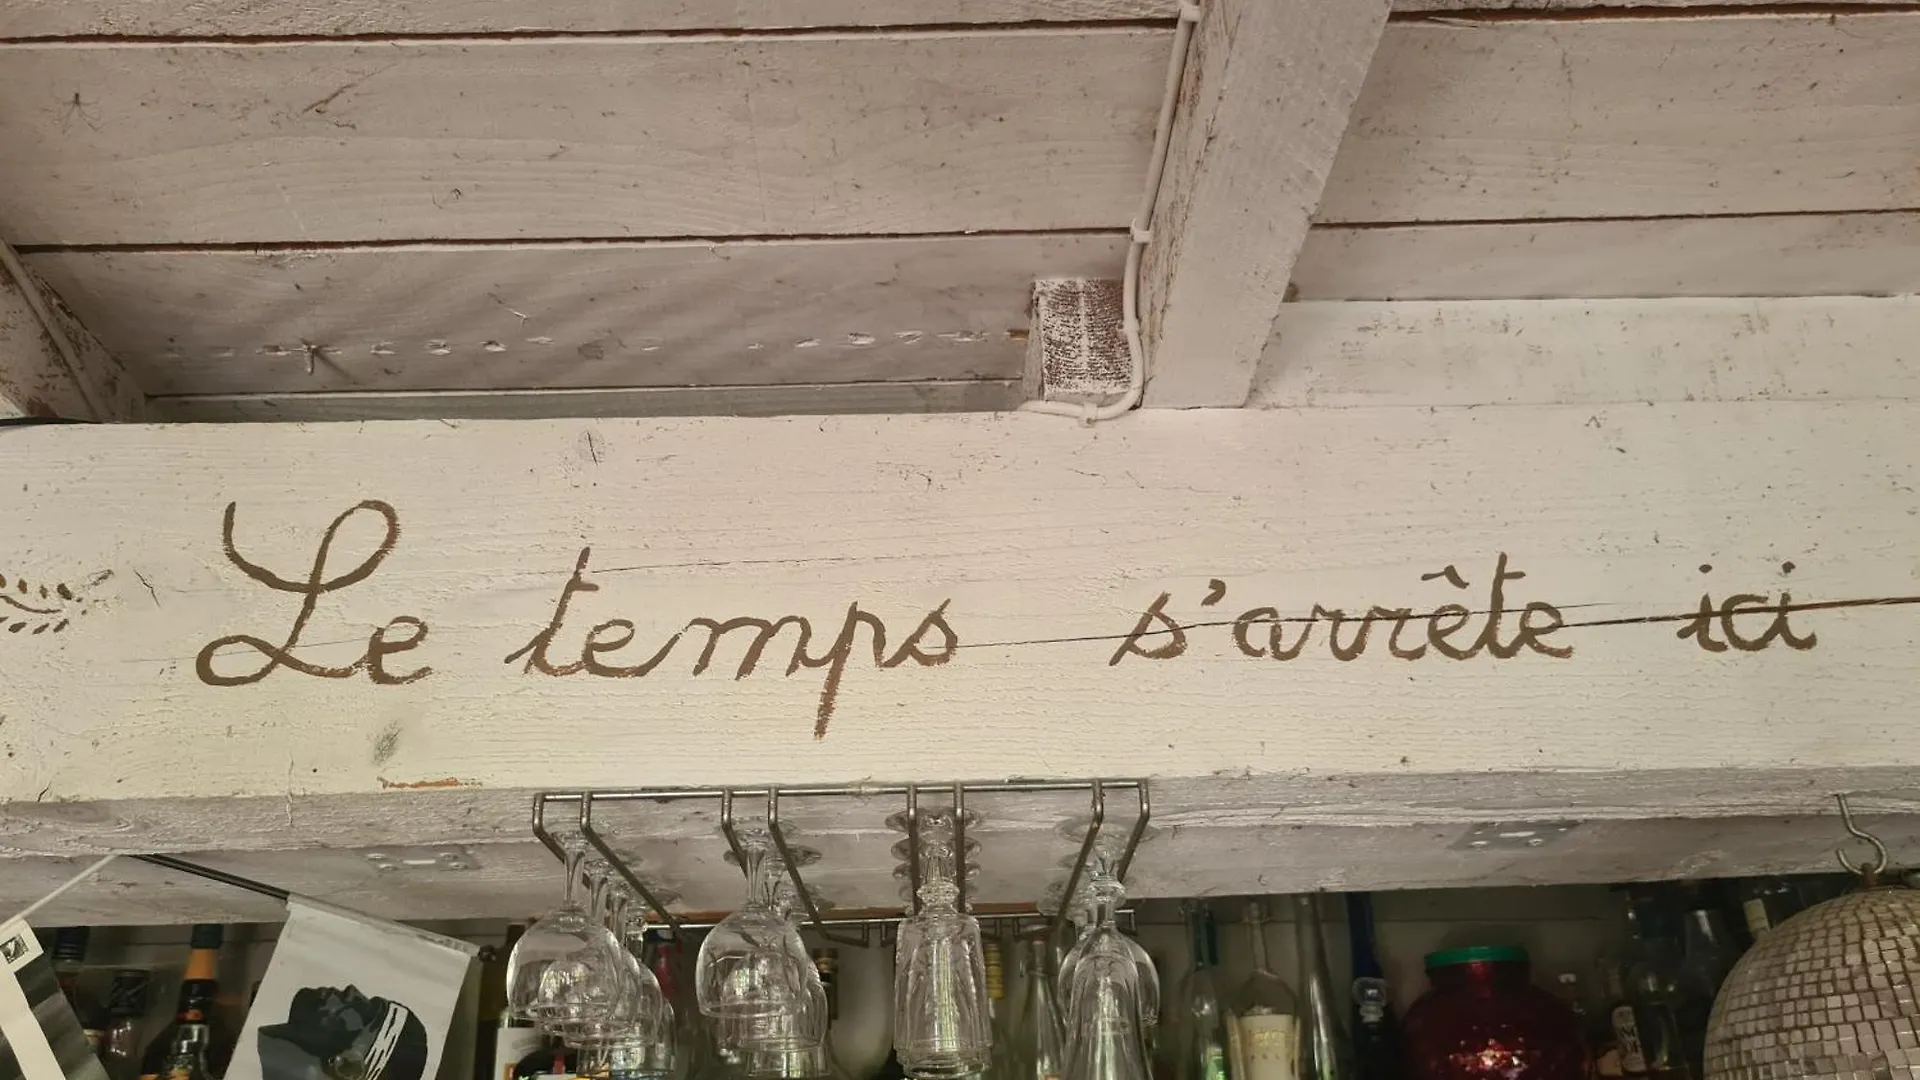 Le temps s'arrête ici